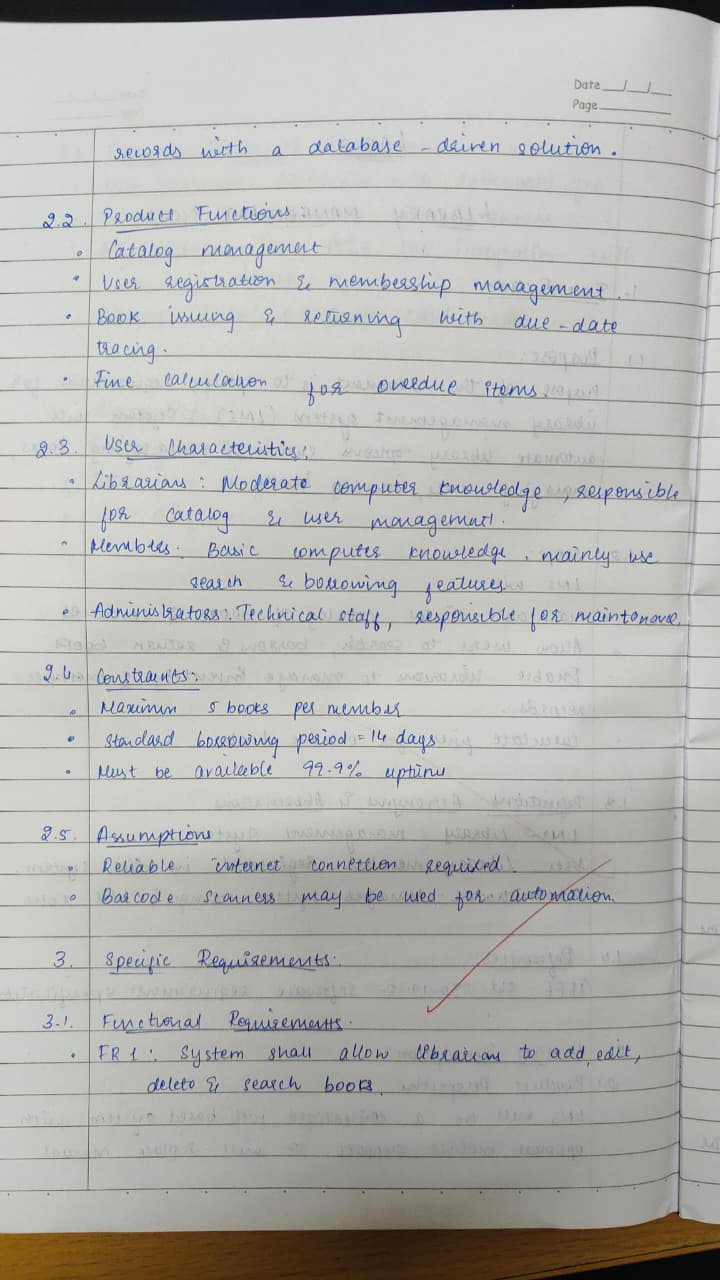 Date __/__/__
Page ________
records with a database - driven solution.
2.2. Product Functions:
• Catalog management
• User registration & membership management.
• Book issuing & returning with due-date
tracing.
• Fine calculation for overdue items.
2.3. User Characteristics:
• Librarians: Moderate computer knowledge, responsible
for catalog & user management.
• Members: Basic computer knowledge, mainly use
search & borrowing features
• Administrators: Technical staff, responsible for
2.4 Constraints:
• Maximum 5 books per member
• Standard borrowing period = 14 days
• Must be available 99.9% uptime
2.5. Assumptions
• Reliable internet connection required.
• Barcode scanners may be used for automation.
3. Specific Requirements:
3.1. Functional Requirements.
• FR 1: System shall allow librarian to add, edit,
delete & search books.